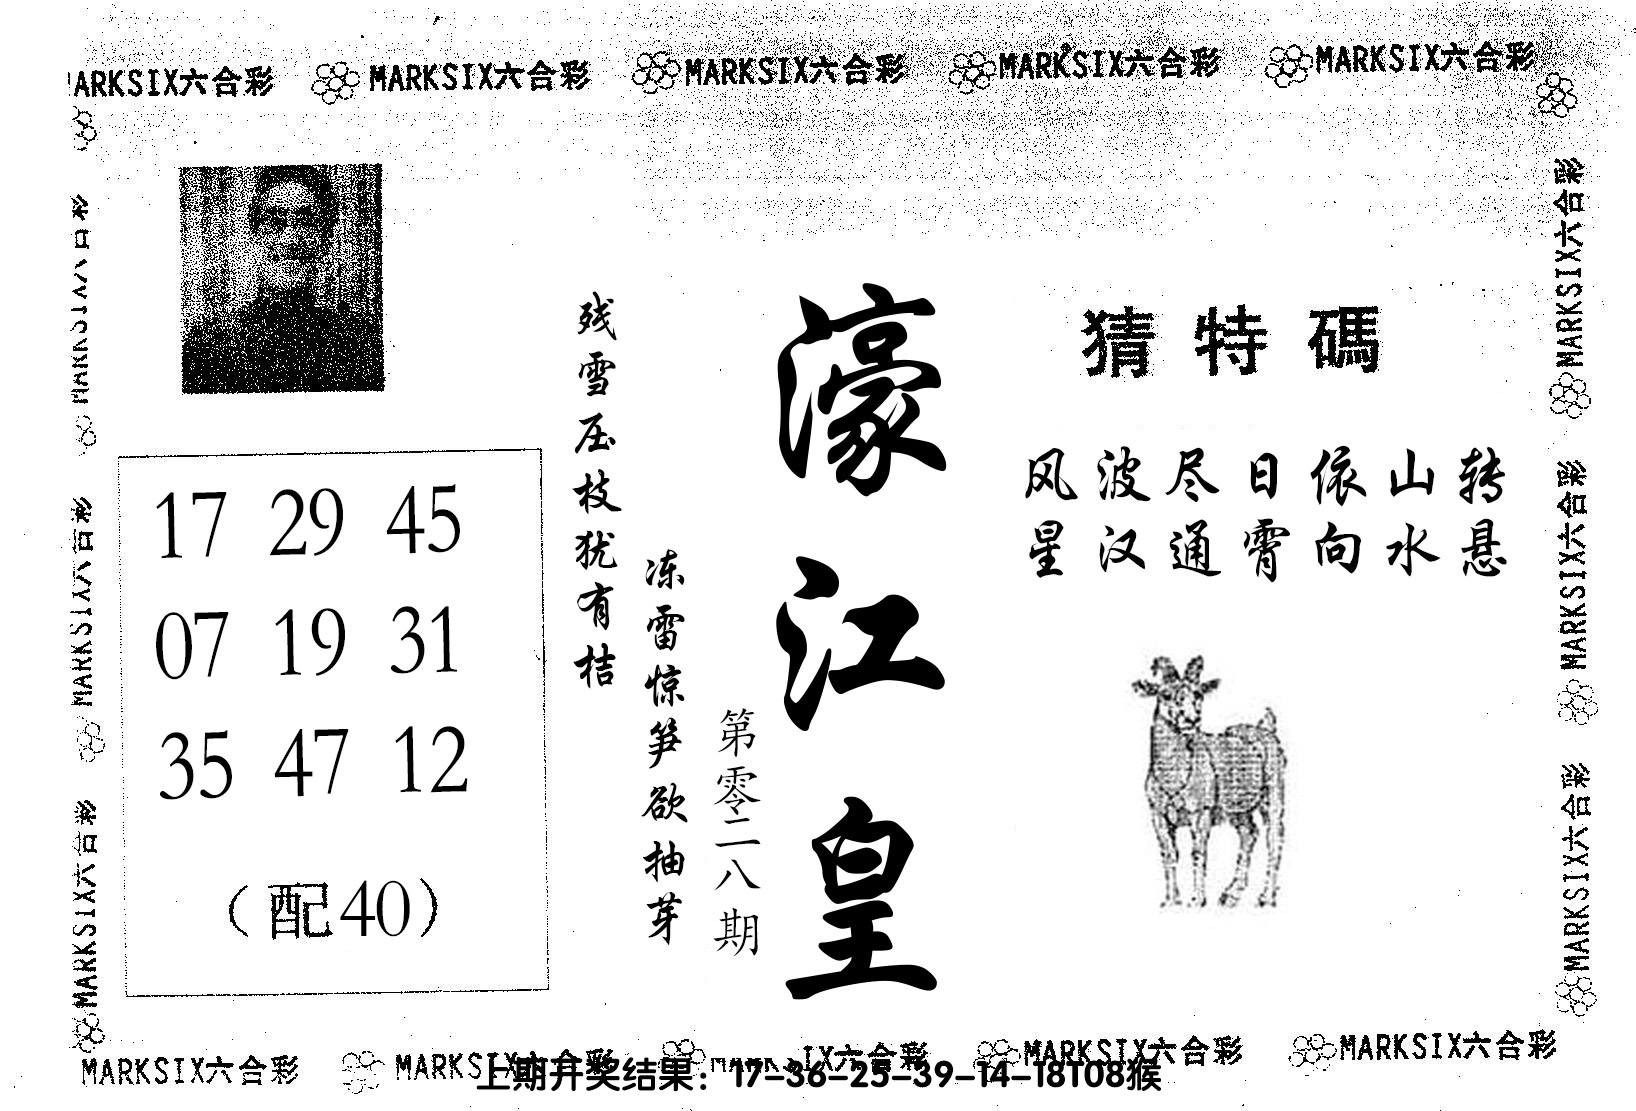 MARKSIX六合彩 MARKSIX六合彩 MARKSIX六合彩 MARKSIX六合彩 MARKSIX六合彩
猜特碼
风波尽日依山转
星汉通霄向水悬
濠江皇
第零二八期
残雪压枝犹有桔
冻雷惊笋欲抽芽
17 29 45
07 19 31
35 47 12
(配40)
MARKSIX六合彩
MARKSIX六合彩
MARKSIX六合彩
MARKSIX六合彩
MARKSIX六合彩
MARKSIX六合彩
MARKSIX六合彩 MARKSIX六合彩 MARKSIX六合彩 MARKSIX六合彩 MARKSIX六合彩
上期开奖结果：17-36-25-39-14-18T08猴